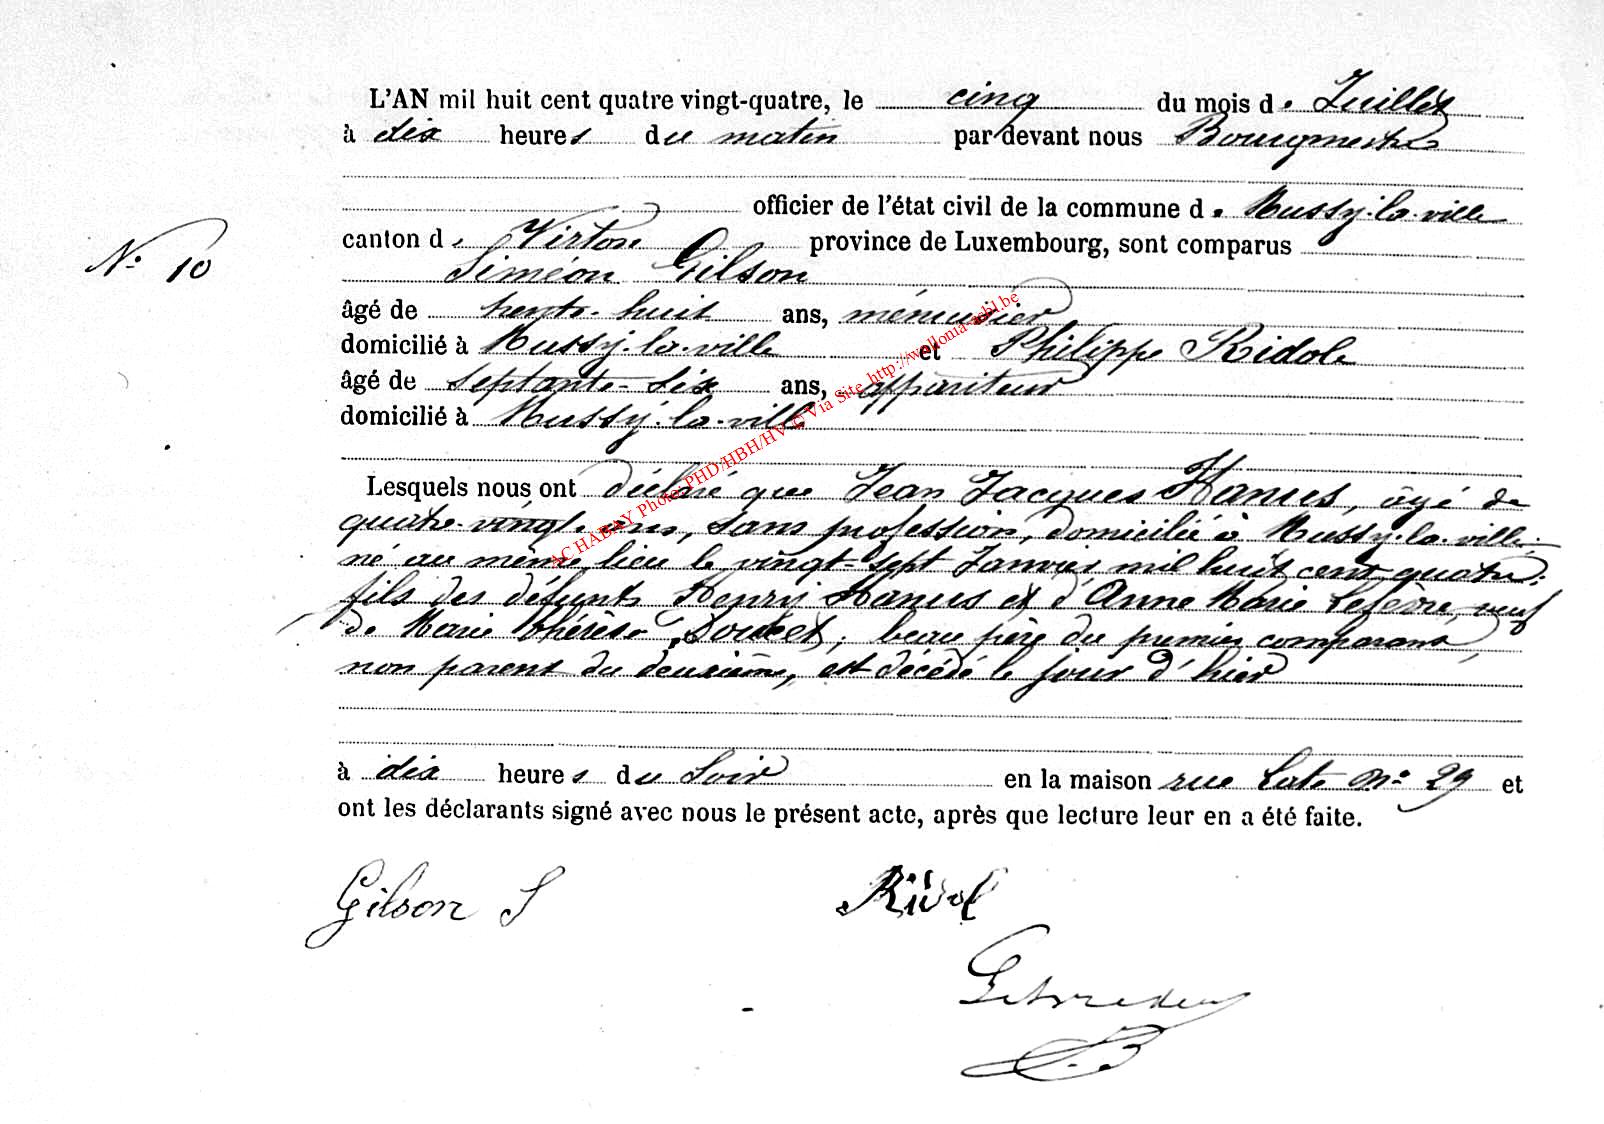 L'AN mil huit cent quatre vingt-quatre, le cinq du mois de Juillet
à dix heures du matin par devant nous Bourgmestre
officier de l'état civil de la commune de Mussy-la-ville
N° 10
canton de Virton province de Luxembourg, sont comparus
Siméon Gilson
âgé de trente-huit ans, ménuisier
domicilié à Mussy-la-ville et Philippe Ridole
âgé de septante-six ans, appariteur
domicilié à Mussy-la-ville
Lesquels nous ont déclaré que Jean Jacques Hanus, âgé de
quatre-vingt ans, sans profession, domicilié à Mussy-la-ville
né au même lieu le vingt-sept Janvier mil huit cent quatre;
fils des défunts Henry Hanus et d'Anne Marie Lefèvre, veuf
de Marie thérèse ; beau père du premier comparant,
non parent du deuxième, est décédé le jour d'hier
à dix heures du soir en la maison rue n° 29 et
ont les déclarants signé avec nous le présent acte, après que lecture leur en a été faite.
Gilson S Ridol
AC HABAY Photo: PHD/HBH/HV © Via Site http://wallonia-asbl.be